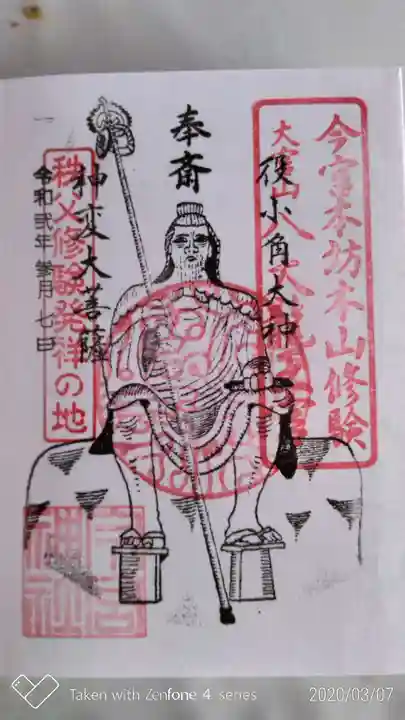 今宮本坊本山修験
大宮山八大龍王宮
役小角大神
奉斎
神変大菩薩
秩父修験発祥の地
令和弐年 参月七日
今宮神社
Taken with Zenfone 4 series
2020/03/07